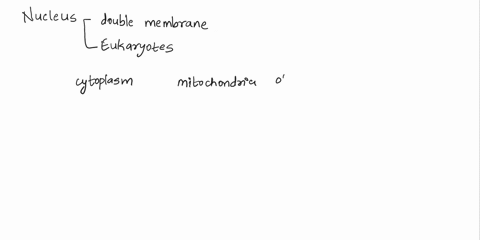 Nucleus - double membrane
- Eukaryotes
cytoplasm mitochondria